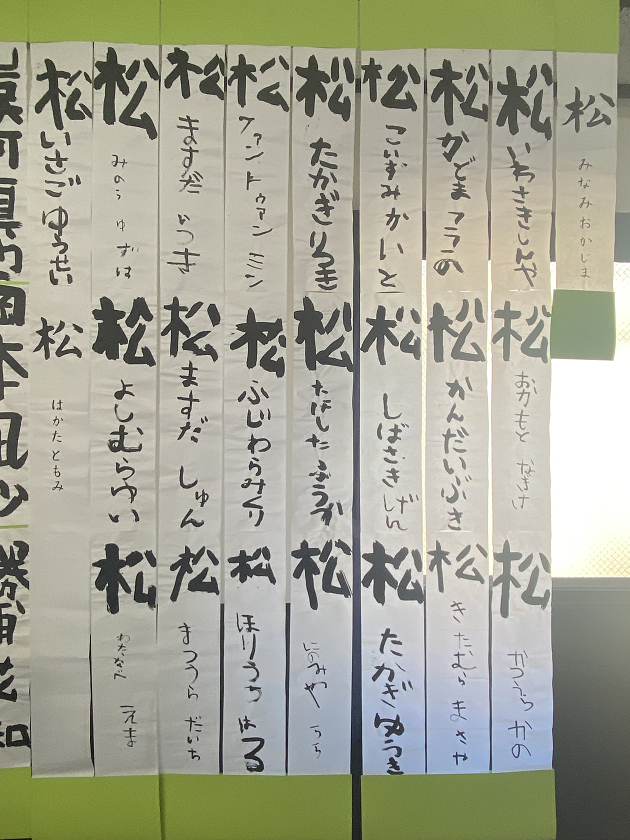 松
みなみおかじま
松
いわさきしんや
松
おかもと なぎさ
松
かつうら かの
松
かどま
松
かんだいぶき
松
きたむら まさや
松
こいずみ かいと
松
しばさき げん
松
たかぎ ゆうき
松
たかぎ りつき
松
たなした ふうか
松
にのみや うら
松
ファン ドゥアン ミン
松
ふじわらみくり
松
ほりうち はる
松
ますだ いつき
松
ますだ しゅん
松
まつうら だいち
松
みのう ゆずは
松
よしむらゆい
松
わたなべ えま
松
いさご ゆうせい
松
はかた ともみ